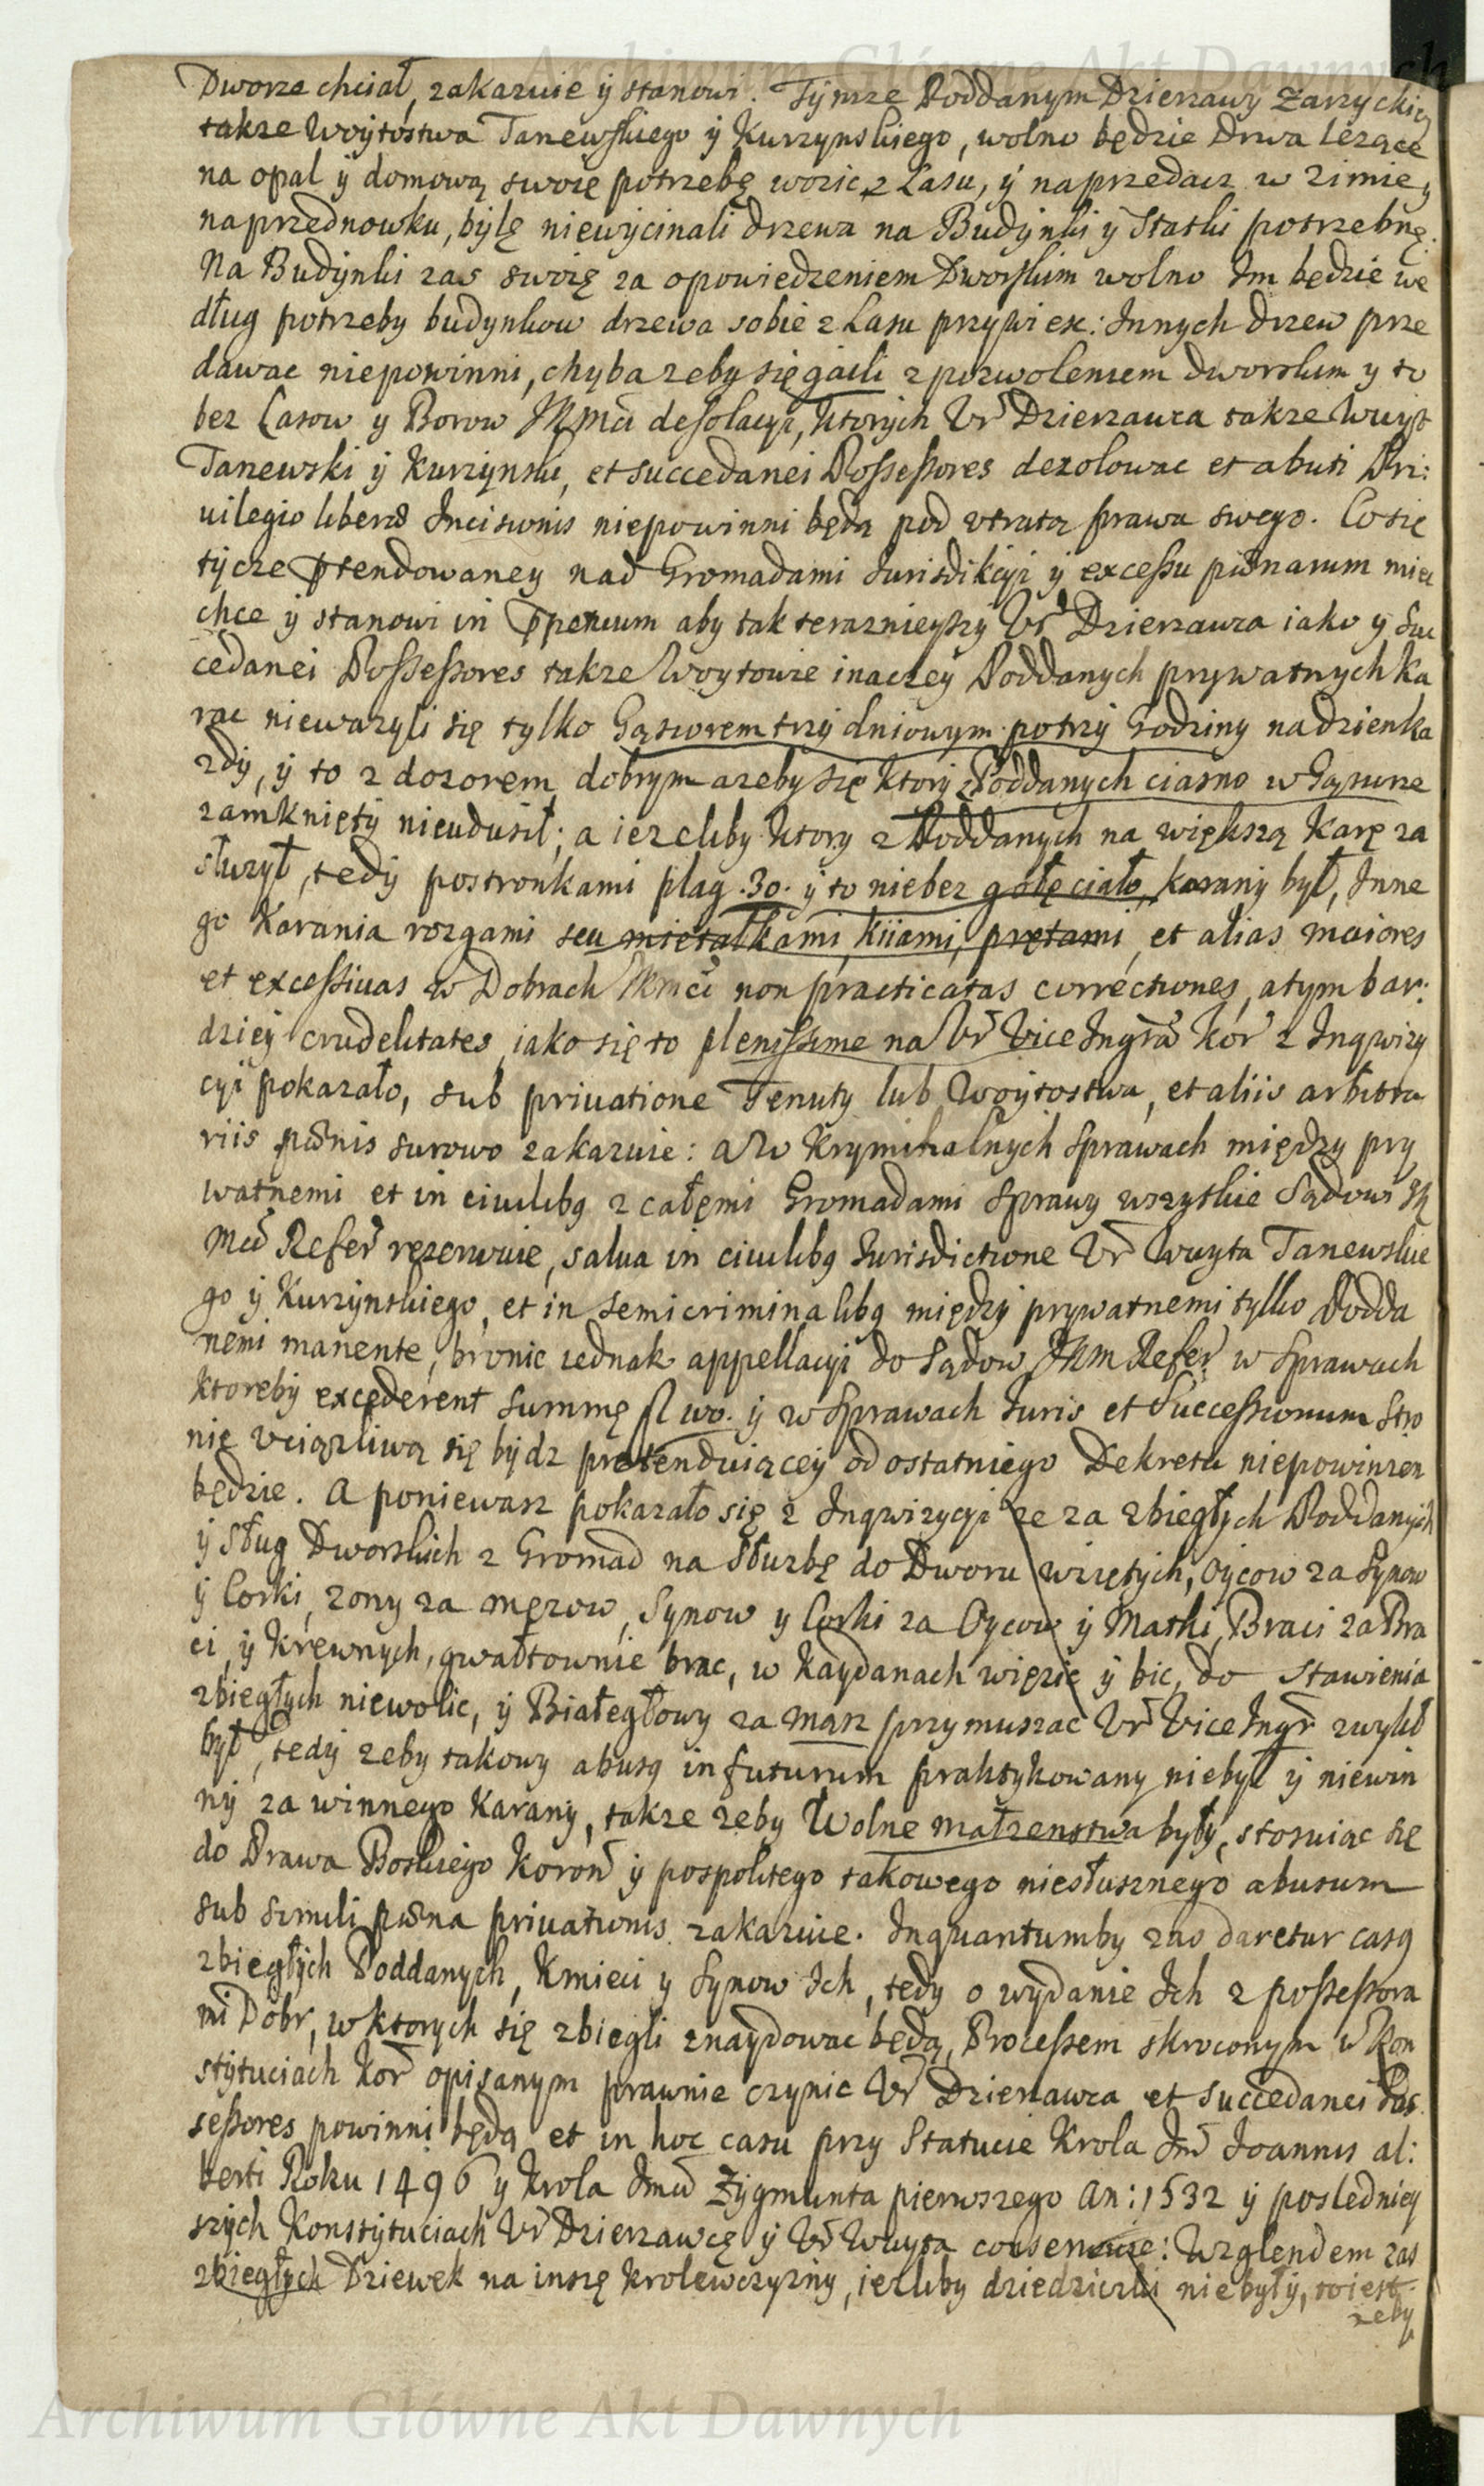 Archiwum Główne Akt Dawnych
Dworze chciał, zakazuie ÿ stanowi. Tÿmze Poddanym Dzierzawy Zarzyckieÿ
takze Woÿtostwa Tanewskiego ÿ Kurzynskiego, wolno będzie drwa lezące
na opał ÿ domową swoię potrzebę wozic z Lasu, ÿ naprzedasz w zimie ÿ
naprzednowku, bÿlę niewÿcinali drzewa na Budÿnki ÿ Statki potrzebnę.
Na Budÿnki zas swoię za opowiedzeniem Dworskim wolno Im będzie we
dług potrzeby budynkow drzewa sobie z Lasu przÿwiesc: Innych drzew prze
dawac niepowinni, chyba zeby się gaili z pozwoleniem dworskim y to
bez Lasow ÿ Borow JKMci desolacyi, ktorych Ur Dzierzawca takze Wuyt
Tanewski ÿ Kurzÿnski, et succedanei Possessores dezolowac et abuti Pri:
uilegio liberæ Incisionis niepowinni będą pod vtratą prawa swego. Co się
tÿcze prtendowaney nad Gromadami Iurisdikcyi ÿ excessu pœnarum miec
chce ÿ stanowi in ppetuum aby tak terazniejszy Ur Dzierzawca iako y Suc
cedanei Possessores takze Woytowie inaczeÿ Poddanych prywatnych ka
rac niewazyli się tylko Gąsiorem trzÿ dniowym potrzÿ Godziny nadzien ka
zdÿ, ÿ to z dozorem dobrym azeby się ktorÿ z Poddanych ciasno w Gąsiorze
zamkniętÿ nieudusił; a iezeliby ktory z Poddanych na większą Karę za
słuzÿł, tedÿ postronkami plag .30. ÿ to niebez gołę ciało, karanÿ był, Inne
go Karania rozgami seu mietałkami, kiiami, prętami, et alias maiores
et excessiuas w Dobrach JKmci non practicatas correctiones, atym bar:
dzieÿ crudelitates, iako się to plenissime na Ur Vice Ingra Kor z Inqwizy
cyi pokazało, sub priuatione Tenuty lub Woÿtostwa, et aliis arbitra
riis pœnis surowo zakazuie: A w Kryminalnÿch sprawach między pry
watnemi et in ciuilibq z całęmi Gromadami sprawy wszytkie Sądow JK
Mci Refer rezerwuie, salua in ciuilibq Iurisdictione Ur Wuyta Tanewskie
go ÿ Kurzÿnskiego, et in semicriminalibq międzÿ prywatnemi tylko Podda
nemi manente, bronic iednak appellacyi do Sądow JKM Refer w sprawach
ktoreby excederent summę fl 100. ÿ w sprawach Iuris et Successionum stro
nię vciązliwą się bÿdz pretenduiąceÿ od ostatniego Dekretu niepowinien
będzie. A poniewasz pokazało się z Inqwizycyi ze za zbiegłych Poddanÿch
ÿ Sług Dworskich z Gromad na słuzbę do Dworu wziętÿch, Oÿcow za Synow
ÿ Corki, zony za męzow, Synow y Corki za Oycow ÿ Matki, Braci za Bra
ci, ÿ Krewnych, gwałtownie brac, w Kaydanach więzic ÿ bic, do stawienia
zbiegłych niewolic, ÿ Białegłowy za mąsz przymuszac Ur Vice Ingr zwykł
był, tedÿ zeby takowy abusq in futurum praktykowany niebył ÿ niewin
nÿ za winnego Karanÿ, takze zeby Wolne małzenstwa bÿły, stosuiąc się
do Prawa Boskiego Koron ÿ pospolitego takowego niesłusznego abusum
sub simili pœna priuationis zakazuie. Inquantumby zas daretur casq
zbiegłÿch Poddanych, Kmieci y Synow Ich, tedy o wÿdanie Ich z possessora
mi Dobr, w ktorych się zbiegli znaydowac będą, Processem skroconym w Kon
stÿtuciach Kor opisanym prawnie czynic Ur Dzierzawca et succedanei Pos
sessores powinni będą et in hoc casu przy Statucie Krola Jm Joannis al:
berti Roku 1496 y Krola Jmci Zÿgmunta pierwszego An: 1532 ÿ posledniey
szÿch Konstÿtuciach Ur Dzierzawcę ÿ Ur Wuyta conseruuie: Wzglendem zas
zbiegłÿch Dziewek na inszę krolewczyznÿ, iezliby dziedziczki niebyłÿ, toiest
zeby
Archiwum Główne Akt Dawnych